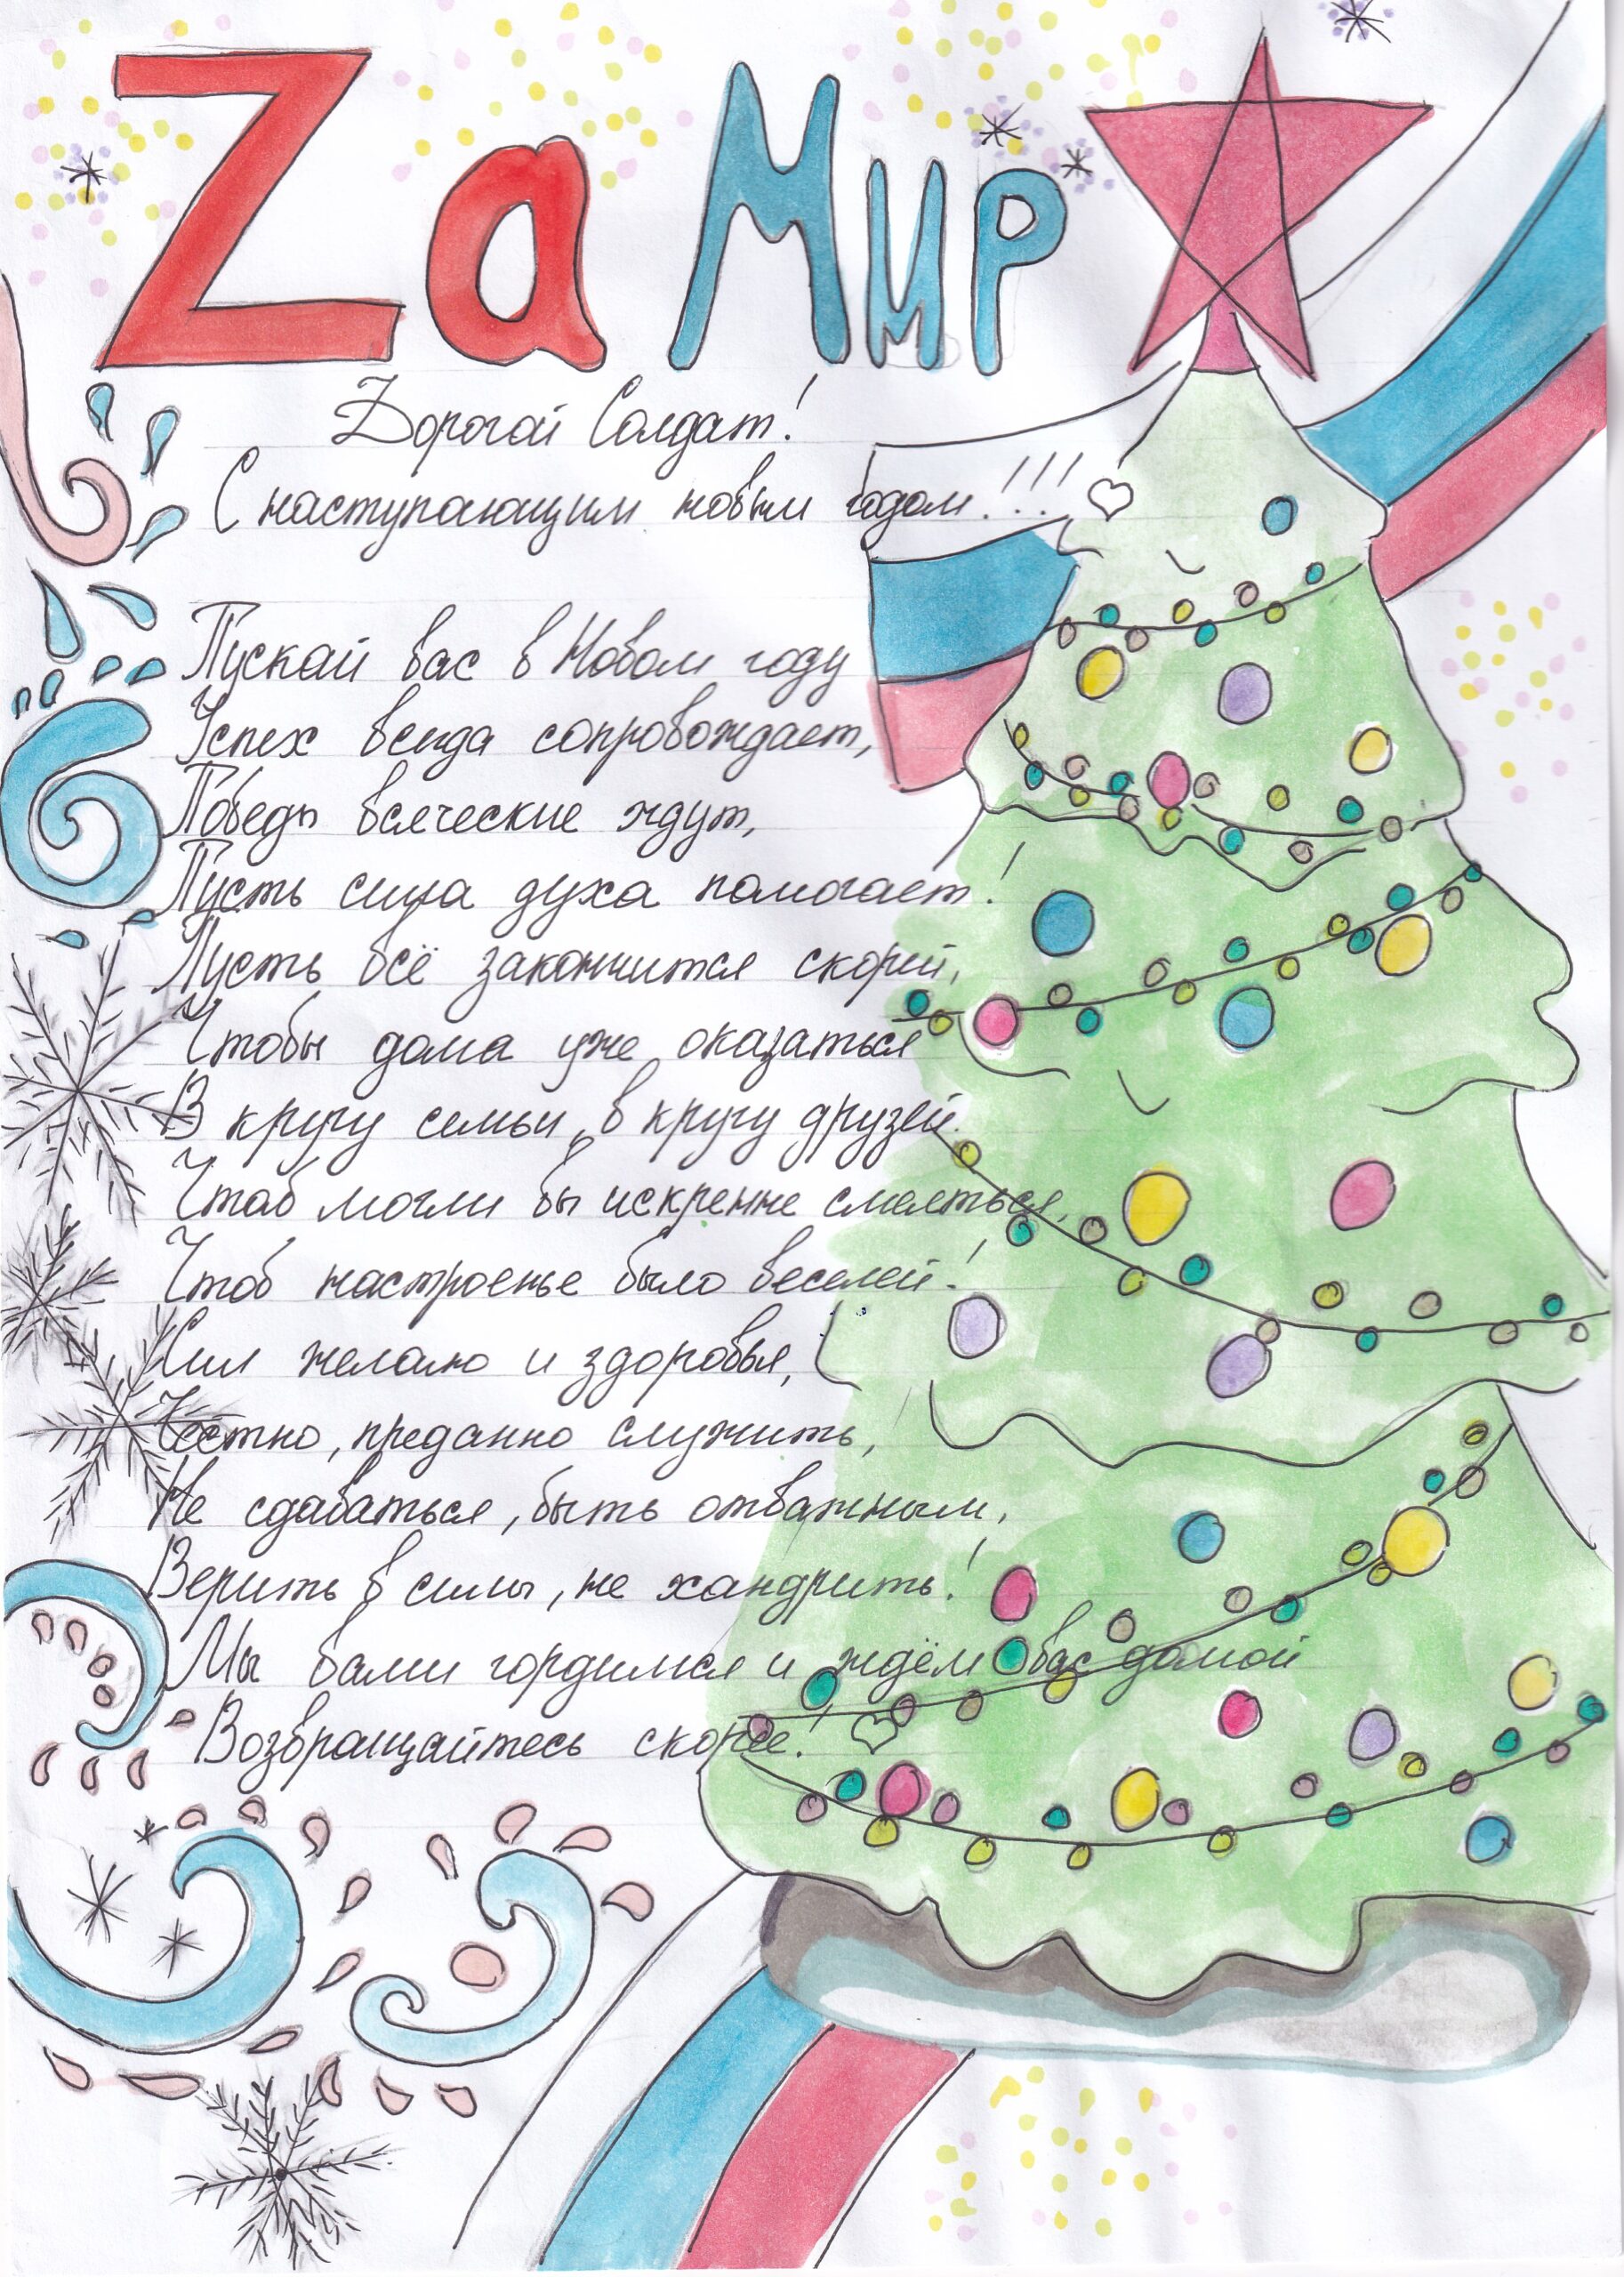 Zа Мир
Дорогой Солдат!
С наступающим новым годом!!!
Пускай вас в Новом году
Успех всегда сопровождает,
Победы всяческие ждут,
Пусть сила духа помогает!
Пусть всё закончится скорей,
Чтобы дома уже оказаться
В кругу семьи, в кругу друзей.
Чтоб могли бы искренне смеяться,
Чтоб настроенье было веселей!
Сил желаю и здоровья,
Честно, преданно служить,
Не сдаваться, быть отважным,
Верить в силы, не хандрить!
Мы вами гордимся и ждём вас домой
Возвращайтесь скорее!